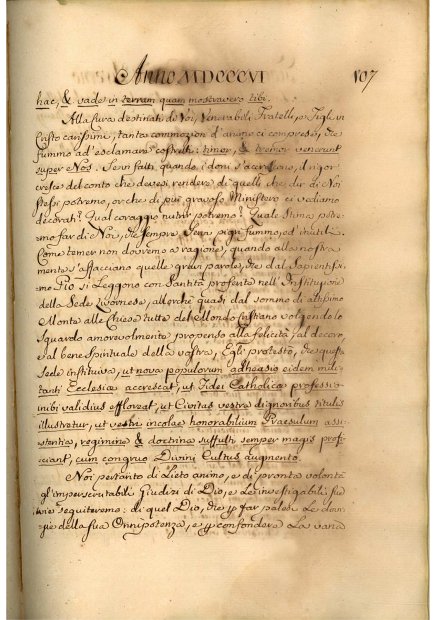 Anno MDCCCVI 107
hac, & vade in terram quam mostravero tibi.
Alla Cura destinati di Voi, Venerabili Fratelli, e Figli in
Cristo carissimi, tanta commozion d'animo ci compresè, che
fummo ad esclamare costretti: timor, & tremor venerunt
super Nos. Servi fatti, quando i doni s'accrescono, il rigor
cresce del conto che dessi rendere di quelli che dir di Noi
stessi potremo, or che di più gravoso Ministero ci vediamo
decorati? Qual coraggio nutrir potremo? Quale Stima potre-
mo far di Noi, che sempre Servi pigri fummo, ed inutili.
Come temer non dovremo a ragione, quando alla nostra
mente s'affacciano quelle gravi parole, che dal Sapientiss-
imo Pio si Leggono con Santità proferte nell'Instituzione
della Sede Livornese, allorchè quasi dal sommo di altissimo
Monte alle Chiese tutte del Mondo Cristiano volgendo lo
Sguardo amorevolmente propenso alla felicità, al decoro,
e al bene Spirituale della vostra, Egli protestò, che questa
Sede instituiva, ut nova populorum adhaesio eidem mili-
tanti Ecclesiae accrescat, ut Fidei Catholicae professio
inibi validius effloreat, ut Civitas vestra dignoribus titulis
illustretur, ut vestri incolae honorabilium Praesulum assi-
stentia, regimine & doctrina suffulti semper magis profi-
ciant, cum congruo Divini Cultus augmento.
Noi pertanto di Lieto animo, e di pronta volontà
gl'imperscrutabili Giudizj di Dio, e Le investigabili sue
vie seguiteremo: di quel Dio, che per far palesi Le
della sua Onnipotenza, e per confondere La vana